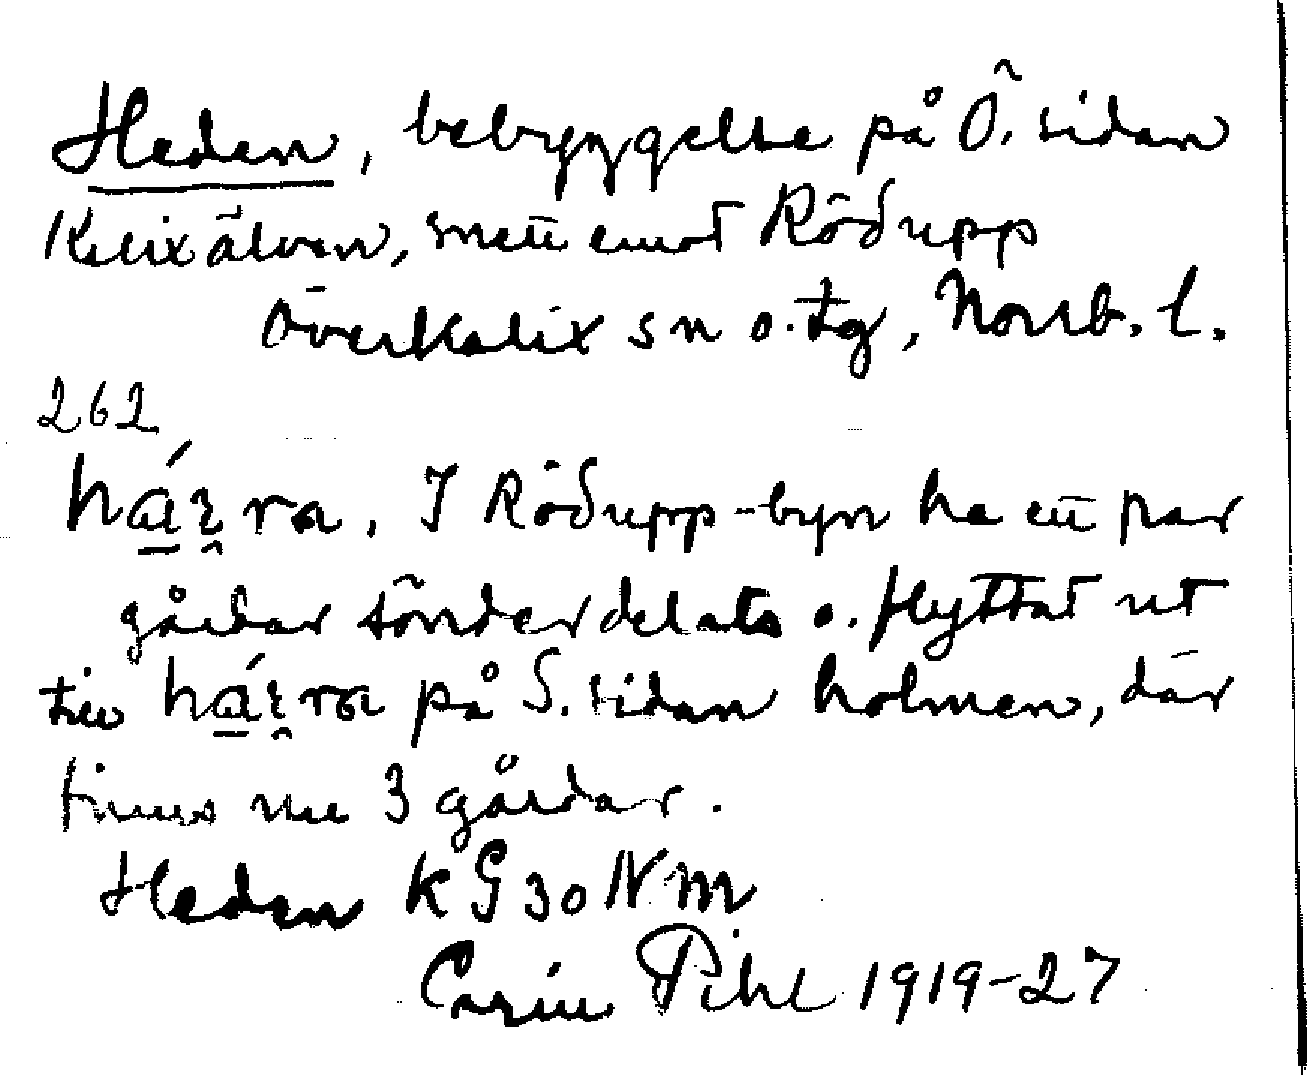 Heden, bebyggelse på Ö. sidan
Kalixälven, mitt emot Rödupp
Överkalix sn o. tg, Norrb. l.
262
há̱ɀ̯ra. I Rödupp-byn ha ett par
gårdar sönderdelats o. flyttat ut
till há̱ɀ̯ra på S. sidan holmen, där
finns nu 3 gårdar.
Heden k G 30 NM
Carin Pihl 1919-27